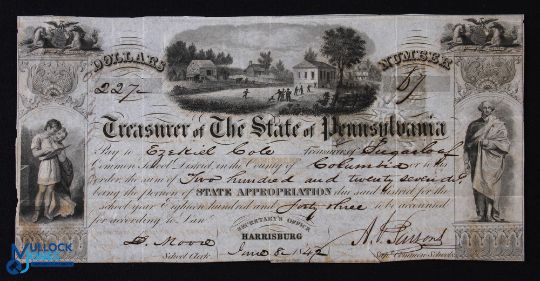 DOLLARS NUMBER
227-
Treasurer of The State of Pennsylvania
Pay to Ezekiel Cole Treasurer of Sugarloaf
Common School District, in the County of Columbia or to his
order, the sum of Two hundred and twenty seven dolls
being the portion of STATE APPROPRIATION due said district for the
school year Eighteen hundred and forty three to be accounted
for according to Law.
SECRETARY'S OFFICE
HARRISBURG
June 8 1842
School Clerk Common Schools
MULLOCK